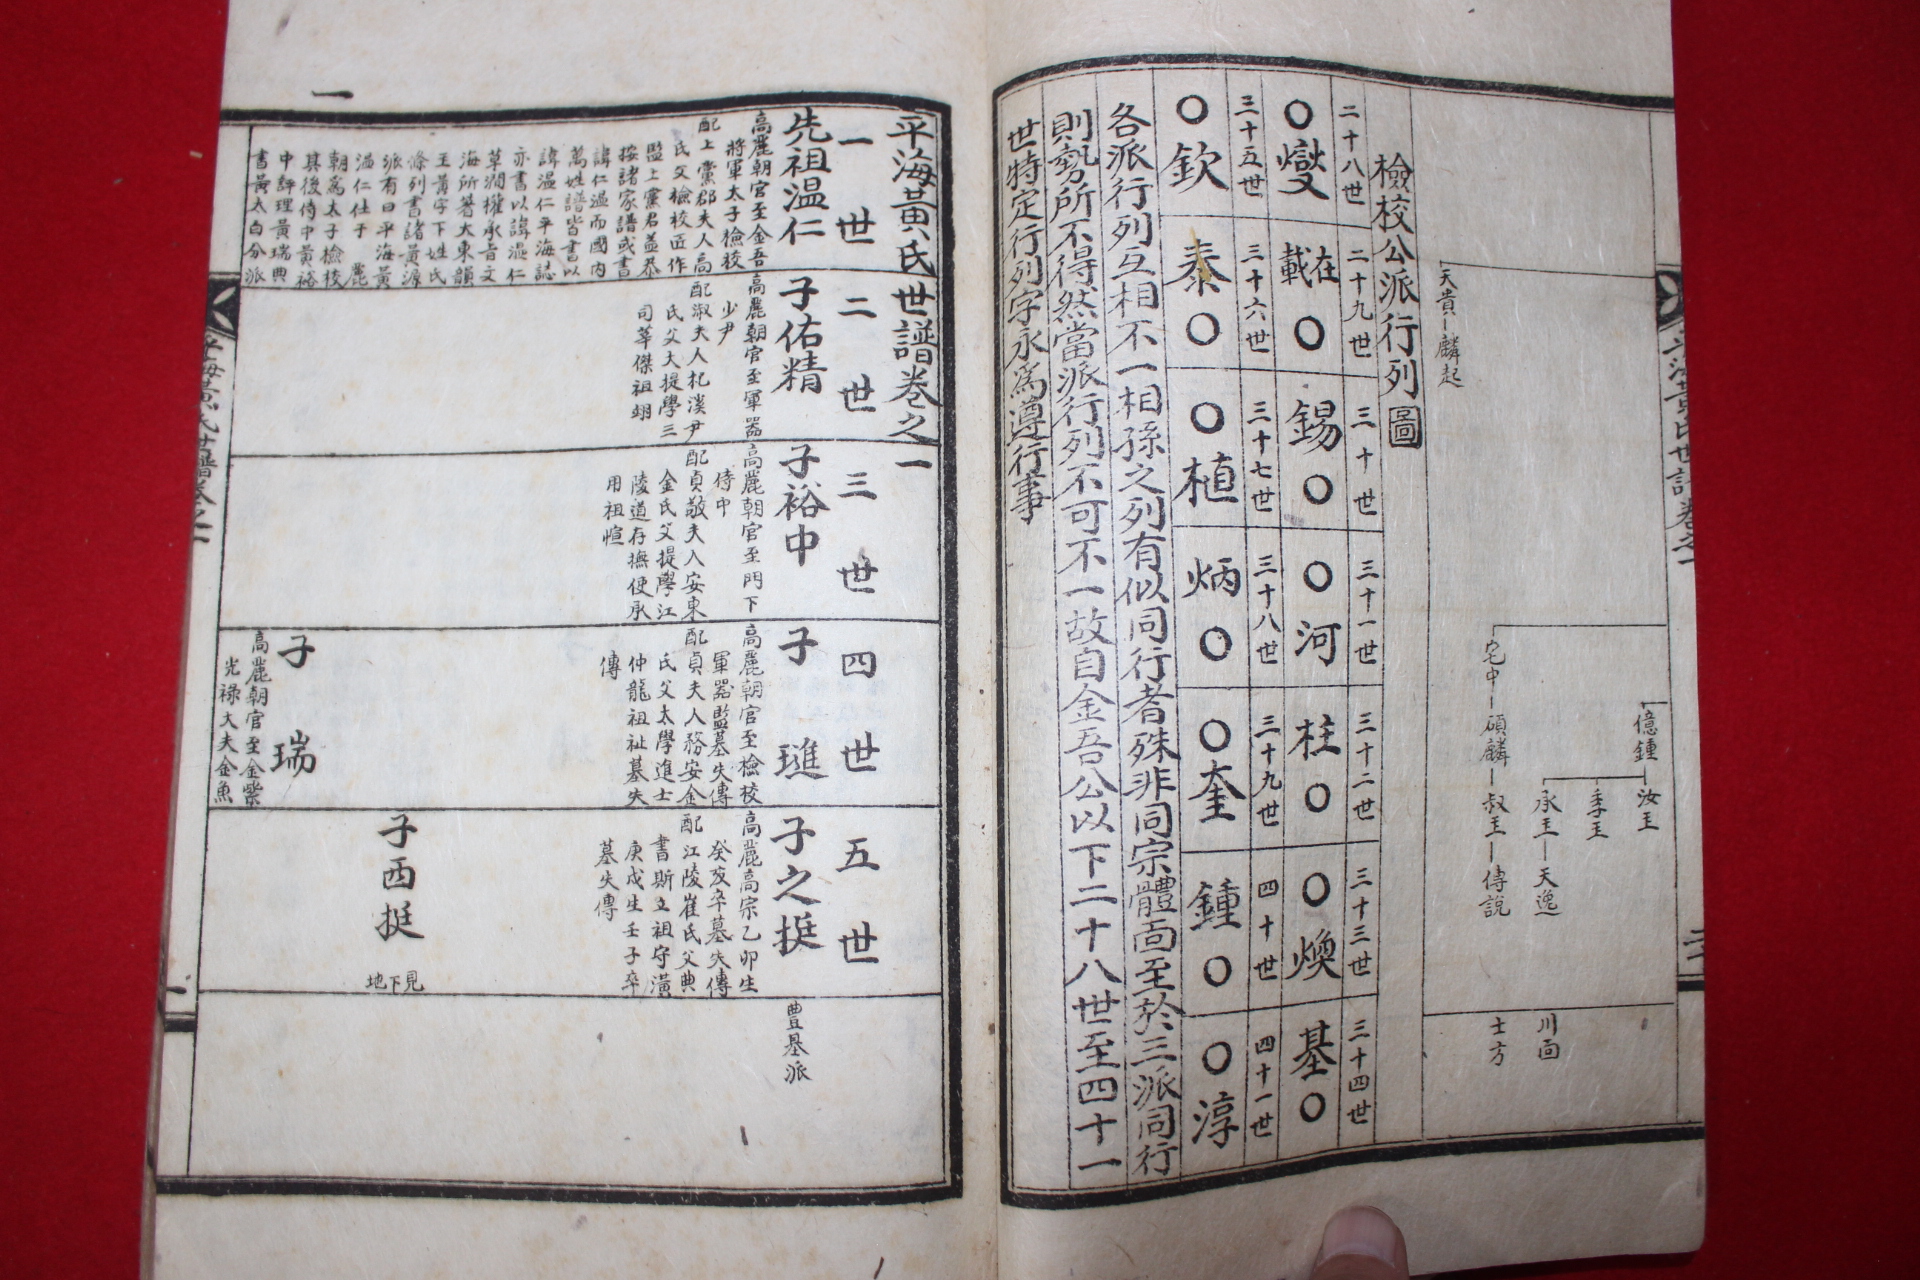 天貴 麟起
宅中 碩麟 叔王 傳說
億鍾 汝王
季王
承王 天逸
川面
士方
檢校公派行列圖
二十八世
二十九世
三十世
三十一世
三十二世
三十三世
三十四世
〇燮
載在〇
錫〇
〇河
柱〇
〇煥
基〇
三十五世
三十六世
三十七世
三十八世
三十九世
四十世
四十一世
〇欽
泰〇
〇植
炳〇
〇奎
鍾〇
〇淳
各派行列互相不一相孫之列有似同行者殊非同宗體面至於三派同行
則勢所不得然當派行列不可不一故自金吾公以下二十八世至四十一
世特定行列字永爲遵行事
平海黃氏世譜卷之一
一世
二世
三世
四世
五世
先祖温仁
高麗朝官至金吾
將軍太子檢校
配上黨郡夫人高
氏父檢校匠作
監上黨君益恭
按諸家譜或書
諱仁温而國內
萬姓譜皆書以
諱温仁平海誌
亦書以諱温仁
草澗權承旨文
海所著大東韻
玉黃字下姓氏
條列書諸黃源
派有曰平海黃
温仁仕于 麗
朝爲太子檢校
其後侍中黃裕
中評理黃瑞典
書黃太白分派
子佑精
高麗朝官至軍器
少尹
配淑夫人杞溪尹
氏父大提學三
司莘傑祖翊
子裕中
高麗朝官至門下
侍中
配貞敬夫人安東
金氏父提學江
陵道存撫使承
用祖愃
子璡
高麗朝官至檢校
軍器監墓失傳
配貞夫人務安金
氏父太學進士
仲龍祖祉墓失
傳
子瑞
高麗朝官至金紫
光祿大夫金魚
子之挺
高麗高宗乙卯生
癸亥卒墓失傳
配江陵崔氏父典
書斯立祖守潢
庚戌生壬子卒
墓失傳
子西挺
見下地
豊基派
一
平海黃氏世譜卷之一
一